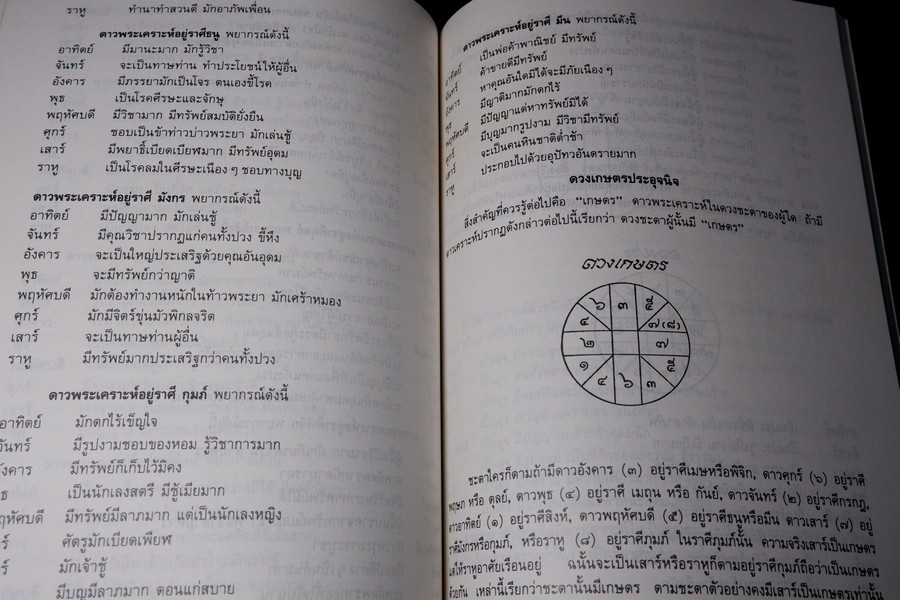 ราหู ทำนาทำสวนดี มักอาภัพเพื่อน
ดาวพระเคราะห์อยู่ราศีธนู พยากรณ์ดังนี้
อาทิตย์ มีมานะมาก มักรู้วิชา
จันทร์ จะเป็นทาษท่าน ทำประโยชน์ให้ผู้อื่น
อังคาร มีภรรยามักเป็นโจร ตนเองขี้โรค
พุธ เป็นโรคศีรษะและจักษุ
พฤหัศบดี มีวิชามาก มีทรัพย์สมบัติยั่งยืน
ศุกร์ ชอบเป็นข้าท่าวบ่าวพระยา มักเล่นชู้
เสาร์ มีพยาธิ์เบียดเบียฬมาก มีทรัพย์อุดม
ราหู เป็นโรคลมในศีรษะเนือง ๆ ชอบทางบุญ
ดาวพระเคราะห์อยู่ราศี มังกร พยากรณ์ดังนี้
อาทิตย์ มีปัญญามาก มักเล่นชู้
จันทร์ มีคุณวิชาปรากฏแก่คนทั้งปวง ขี้หึง
อังคาร จะเป็นใหญ่ประเสริฐด้วยคุณอันอุดม
พุธ จะมีทรัพย์กว่าญาติ
พฤหัศบดี มักต้องทำงานหนักในท้าวพระยา มักเศร้าหมอง
ศุกร์ มักมีจิตร์ขุ่นมัวพิกลจริต
เสาร์ จะเป็นทาษท่านผู้อื่น
ราหู มีทรัพย์มากประเสริฐกว่าคนทั้งปวง
ดาวพระเคราะห์อยู่ราศี กุมภ์ พยากรณ์ดังนี้
อาทิตย์ มักตกไร้เข็ญใจ
จันทร์ มีรูปงามชอบของหอม รู้วิชาการมาก
อังคาร มีทรัพย์ก็เก็บไว้มิคง
ธ เป็นนักเลงสตรี มีชู้เมียมาก
หัศบดี มีทรัพย์มีลาภมาก แต่เป็นนักเลงหญิง
ร์ ศัตรูมักเบียดเพียฬ
ร์ มักเจ้าชู้
มีบุญมีลาภมาก ตอนแก่สบาย
ดาวพระเคราะห์อยู่ราศี มีน พยากรณ์ดังนี้
อาทิตย์ เป็นพ่อค้าพาณิชย์ มีทรัพย์
จันทร์ ค้าขายดีมีทรัพย์
อังคาร หาคุณอันใดมิได้จะมีภัยเนือง ๆ
พุธ มีญาติมากมักตกไร้
พฤหัศบดี มีปัญญาแต่หาทรัพย์มิได้
ศุกร์ มีบุญมากรูปงาม มีวิชามีทรัพย์
เสาร์ จะเป็นคนหินชาติต่ำช้า
ราหู ประกอบไปด้วยอุปัทวอันตรายมาก
ดวงเกษตรประอุจนิจ
สิ่งสำคัญที่ควรรู้ต่อไปคือ “เกษตร” ดาวพระเคราะห์ในดวงชะตาของผู้ใด ถ้ามี
ดาวเคราะห์ปรากฏดังกล่าวต่อไปนี้เรียกว่า ดวงชะตาผู้นั้นมี “เกษตร”
ดวงเกษตร
๖ ๓ ๕
๔ ๗ (๘)
๒ ๗
๑ ๕
๔ ๖ ๓
ชะตาใครก็ตามถ้ามีดาวอังคาร (๓) อยู่ราศีเมษหรือพิจิก, ดาวศุกร์ (๖) อยู่ราศี
พฤษภ หรือ ตุลย์, ดาวพุธ (๔) อยู่ราศี เมถุน หรือ กันย์, ดาวจันทร์ (๒) อยู่ราศีกรกฎ,
ดาวอาทิตย์ (๑) อยู่ราศีสิงห์, ดาวพฤหัศบดี (๕) อยู่ราศีธนูหรือมีน ดาวเสาร์ (๗) อยู่
ราศีมังกรหรือกุมภ์, หรือราหู (๘) อยู่ราศีกุมภ์ ในราศีกุมภ์นั้น ความจริงเสาร์เป็นเกษตร
แต่ให้ราหูอาศัยเรือนอยู่ ฉนั้นจะเป็นเสาร์หรือราหูก็ตามอยู่ราศีกุมภ์ถือว่าเป็นเกษตร
ด้วยกัน เหล่านี้เรียกว่าชะตานั้นมีเกษตร ตามชะตาตัวอย่างคงมีเสาร์เป็นเกษตรเท่านั้น